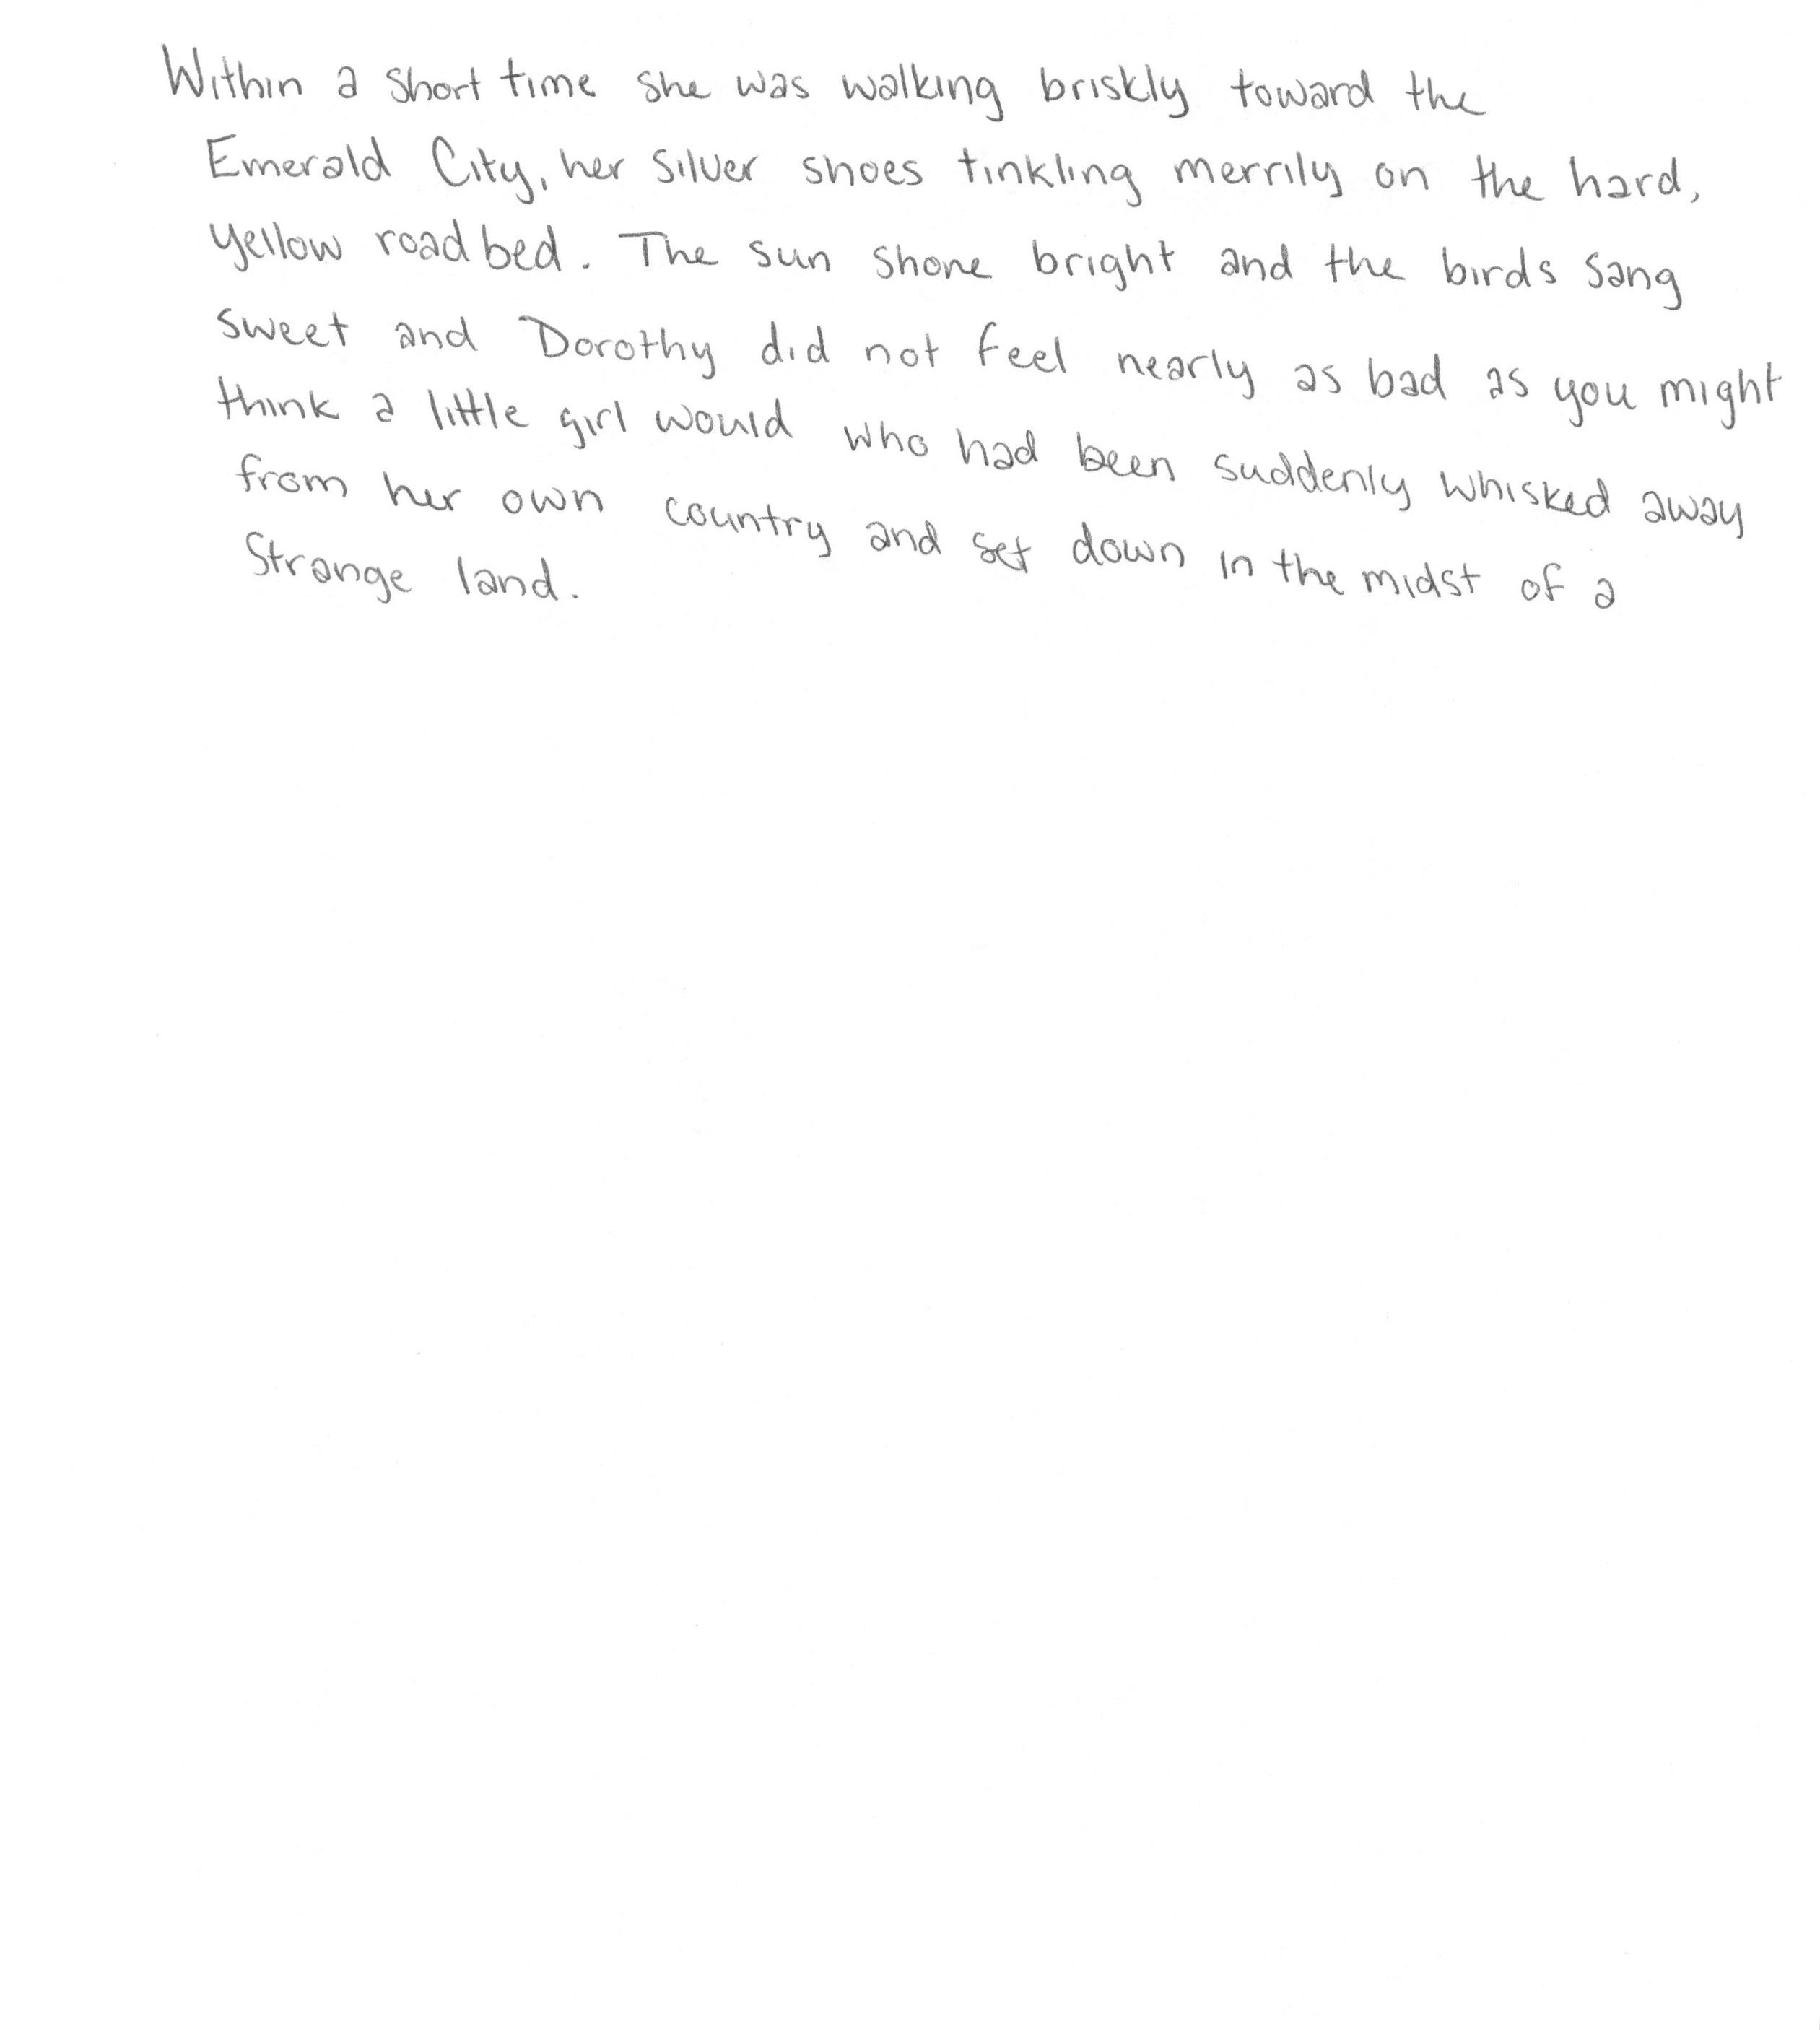 Within a short time she was walking briskly toward the
Emerald City, her silver shoes tinkling merrily on the hard,
yellow road bed. The sun shone bright and the birds sang
sweet and Dorothy did not feel nearly as bad as you might
think a little girl would who had been suddenly whisked away
from her own country and set down in the midst of a
strange land.